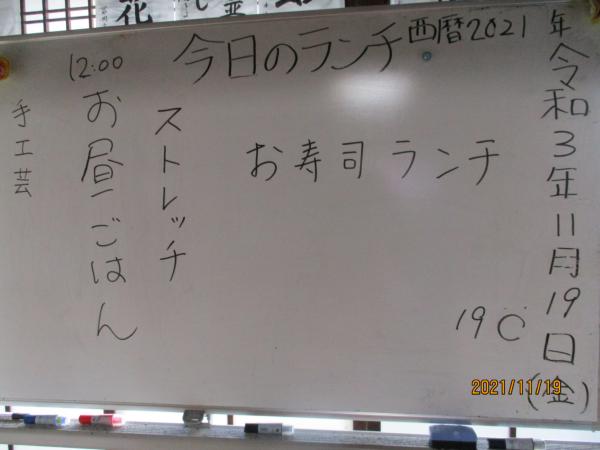 今日のランチ 西暦2021年
令和3年11月19日(金)
お寿司ランチ
19℃
ストレッチ
12:00
お昼ごはん
手工芸
2021/11/19